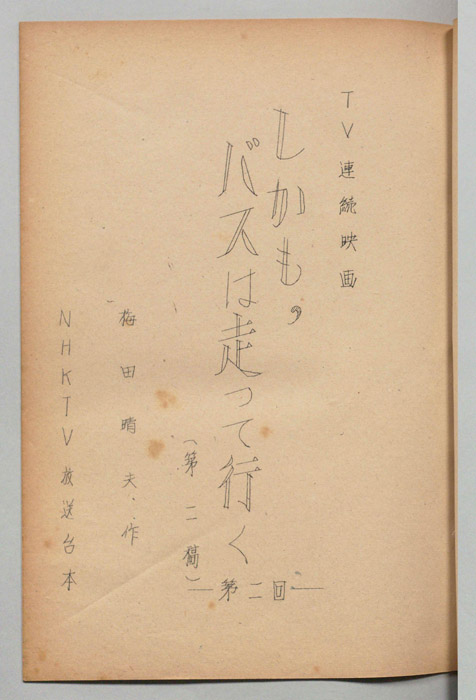 TV連続映画
しかも,
バスは走って行く
(第二稿)
—第二回—
梅田晴夫、作
NHKTV放送台本